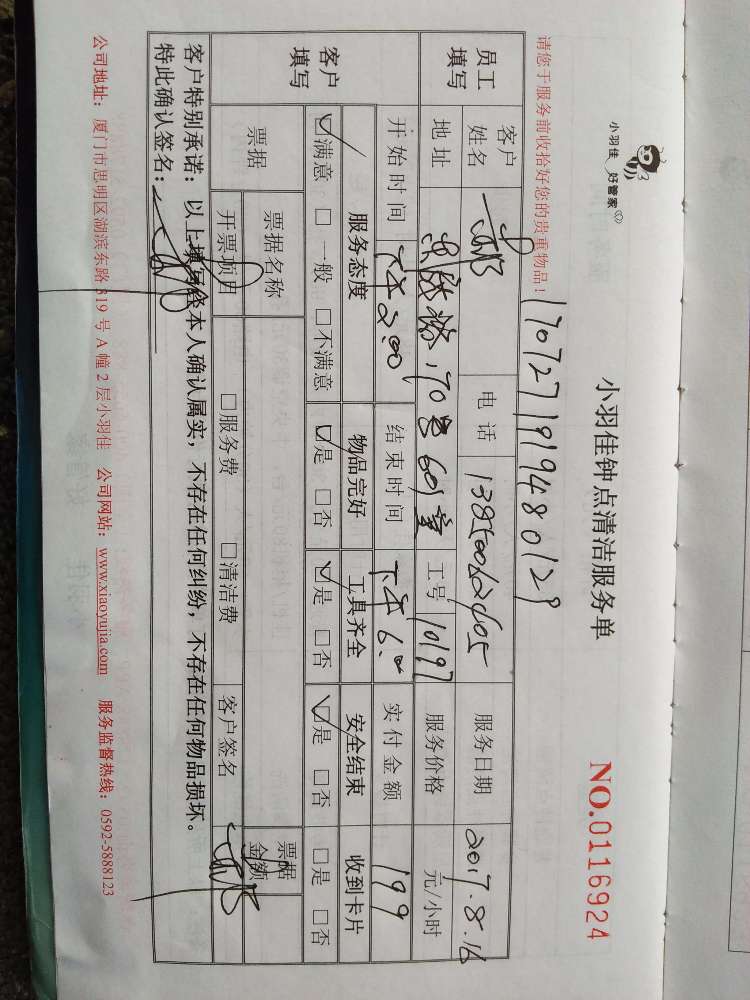 小羽佳 好管家
小羽佳钟点清洁服务单
NO.0116924
请您于服务前收拾好您的贵重物品！
1707271919480129
员工填写
客户姓名
电话 13850062405
服务日期 2017.8.16
地址 170号601室
工号 10197
服务价格 元/小时
开始时间 下午2:00
结束时间 下午6:00
实付金额 199
客户填写
服务态度 物品完好 工具齐全 安全结束 收到卡片
☑满意 □一般 □不满意 ☑是 □否 ☑是 □否 ☑是 □否 □是 □否
票据 票据名称 票据金额
开票项目 □服务费 □清洁费 客户签名
客户特别承诺：以上填写经本人确认属实，不存在任何纠纷，不存在任何物品损坏。
特此确认签名：
公司地址：厦门市思明区湖滨东路319号A幢2层小羽佳 公司网站：www.xiaoyujia.com 服务监督热线：0592-5888123